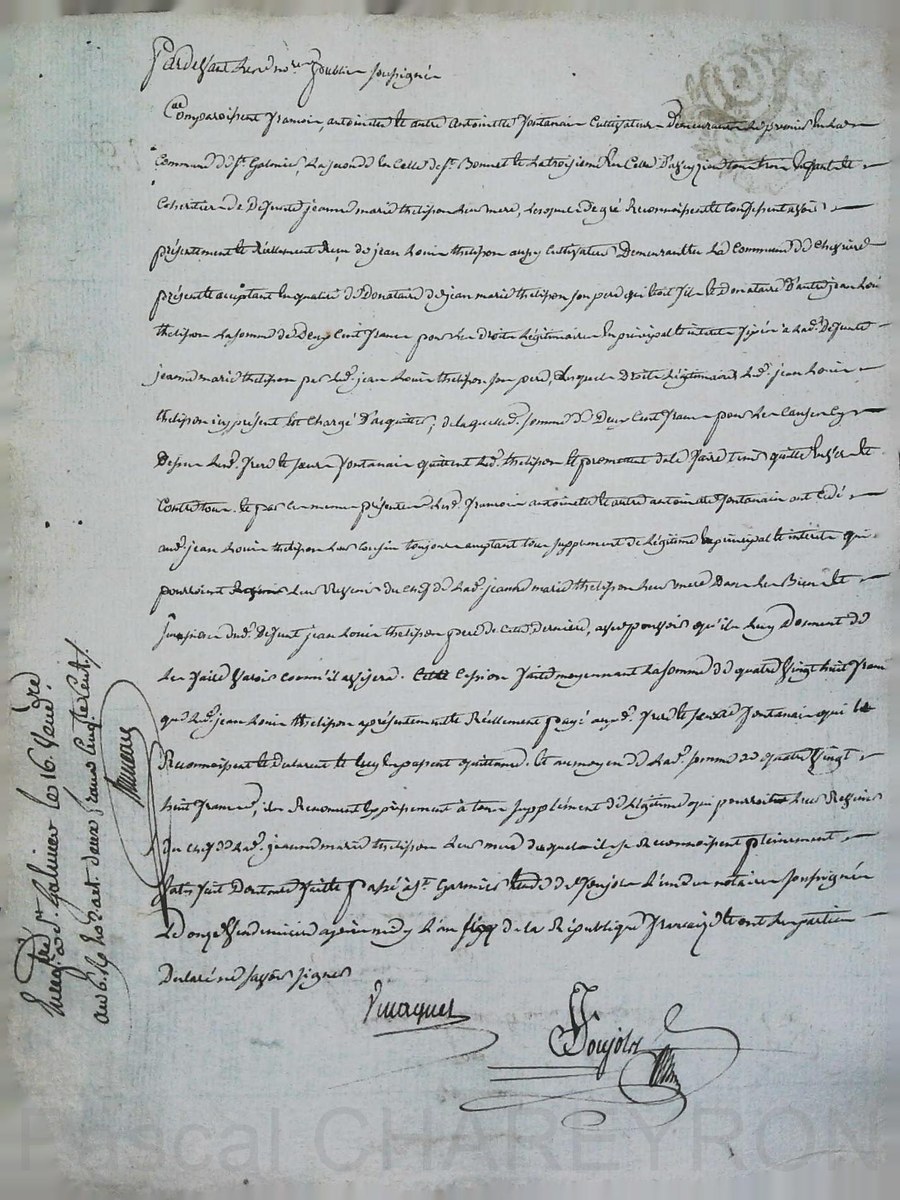 Pardevant les no.res publics soussignés
Comparoissent françois, antoinette et autre Antoinette fontanais cultivateurs Demeurants le premier en la
Commune de St. Galmier, la seconde en celle de St. Bonnet et la troisieme en celle tous trois enfants et
Cohéritiers de Defunte jeanne marie thelisson leur mere, lesquels de gré Reconnoissent et confessent avoir
présentement et Réellement Reçu de jean Louis thelisson aussy cultivateur Demeurant en la Commune de Chevrières
présent et acceptant en qualité de Donataire de jean marie thelisson son pere qui étoit fils et Donataire D'autre jean Louis
thelisson la somme de Deux Cent francs pour les Droits Légitimaires en principal et interets à lad. Defunte
jeanne marie thelisson par led. jean Louis thelisson son pere, desquels Droits Légitimaires led. jean Louis
thelisson icy présent est Chargé D'acquitter; de laquelle somme de Deux Cent francs pour les Causes cy
Dessus lesd. frere et sœurs fontanais quittent led. thelisson et promettent de le faire tenir quitte envers et
Contre tous. Et par ces memes présentes lesd. françois antoinette et autre antoinette fontanais ont Cédé
aud. jean Louis thelisson leur cousin toujours acceptant tous supplement de Légitime en principal et interets qui
pourroient leur Revenir du chef de lad. jeanne marie thelisson leur mere Dans les Biens et
succession dud. Defunt jean Louis thelisson pere de cette derniere, avec pouvoir qu'ils luy Donnent de
les faire valoir comm'il avisera. Cette Cession faite moyennant la somme de quatre vingt huit francs
que led. jean Louis thelisson a présentement et Réellement payé auxd. frere et sœurs fontanais qui le
Reconnoissent et Declarent et luy en passent quittance. Et au moyen de lad. somme de quatre Vingt
huit francs, ils Renoncent expressement à tous supplément de Légitime qui pourroit leur Revenir
Du chef de lad. jeanne marie thelisson leur mere desquels ils se Reconnoissent pleinement
satisfait Dont acte fait et passé à St. Garmier Etude de Soujols l'un des notaires soussignés
Le onze Vendemiaire après midy l'an de la République française et ont les parties
Declaré ne savoir signer
Soujols
Enreg.tré à St. Galmier le 16 Vend.re
an 6. Reçu